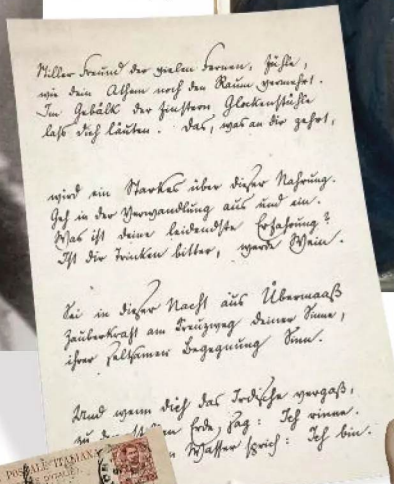 Stiller Freund der vielen Fernen, fühle,
wie dein Athem noch den Raum vermehrt.
Im Gebälk der finstern Glockenstühle
lass Dich läuten. Das, was an dir zehrt,
wird ein Starkes über dieser Nahrung.
Geh in der Verwandlung aus und ein.
Was ist deine leidendste Erfahrung?
Ist dir Trinken bitter, werde Wein.
Sei in dieser Nacht aus Übermaaß
Zauberkraft am Kreuzweg deiner Sinne,
ihrer seltsamen Begegnung Sinn.
Und wenn dich das Irdische vergaß,
zu der Erde sag: Ich rinne.
Wasser sprich: Ich bin.
POSTALE ITALIANA